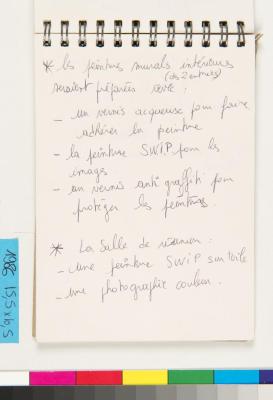 * les peintures murals intérieures
(des 2 entrées)
seraient préparées avec :
- un vernis acqueuse pour faire
adhérer la peinture
- la peinture SWIP pour les
images
- un vernis anti graffiti pour
protéger les peintures.
* La Salle de réunion :
- une peinture SWIP sur toile
- une photographie couleur.
1986
15,5 x 9,5